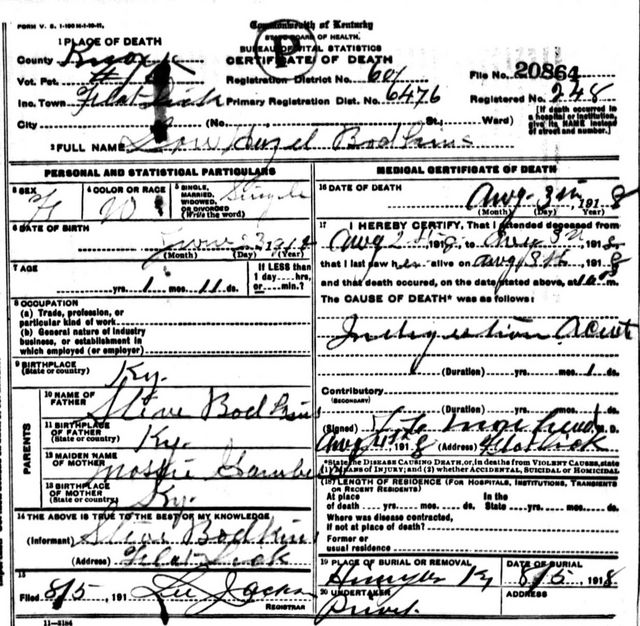 FORM V. S. 1-100M-1-10-11.
Commonwealth of Kentucky
STATE BOARD OF HEALTH.
BUREAU OF VITAL STATISTICS
CERTIFICATE OF DEATH
1 PLACE OF DEATH
County Knox
Vot. Pct.
Registration District No. 601
File No. 20864
Inc. Town Flat Lick Primary Registration Dist. No. 6476
Registered No. 248
City (No., St., Ward)
[If death occurred in a hospital or institution, give its NAME instead of street and number.]
2 FULL NAME Hazel Bodkins
PERSONAL AND STATISTICAL PARTICULARS
3 SEX F
4 COLOR OR RACE W
5 SINGLE, MARRIED, WIDOWED, OR DIVORCED (Write the word) Single
6 DATE OF BIRTH
June 191
(Month) (Day) (Year)
7 AGE
yrs. 1 mos. 11 ds.
If LESS than 1 day hrs. or min.?
8 OCCUPATION
(a) Trade, profession, or particular kind of work
(b) General nature of industry business, or establishment in which employed (or employer)
9 BIRTHPLACE
(State or country) Ky.
PARENTS
10 NAME OF FATHER Steve Bodkins
11 BIRTHPLACE OF FATHER (State or country) Ky.
12 MAIDEN NAME OF MOTHER
13 BIRTHPLACE OF MOTHER (State or country) Ky.
14 THE ABOVE IS TRUE TO THE BEST OF MY KNOWLEDGE
(Informant) Steve Bodkins
(Address) Flat Lick
15
Filed 8/5, 191 Lee Jackson
REGISTRAR
11-3184
MEDICAL CERTIFICATE OF DEATH
16 DATE OF DEATH
Aug. 3 1918
(Month) (Day) Year
17 I HEREBY CERTIFY, That I attended deceased from
Aug 2 191 , to Aug 3 1918
that I last saw her alive on Aug 3th, 1918
and that death occured, on the date stated above, at 10 m.
The CAUSE OF DEATH* was as follows:
Indigestion Acute
(Duration) yrs. mos. 1 ds.
Contributory
(SECONDARY)
(Duration) yrs. mos. ds.
(Signed) M. D.
Aug 4th 8 (Address) Flat Lick
*State the DISEASE CAUSING DEATH, or, in deaths from VIOLENT CAUSES, state (1) MEANS OF INJURY; and (2) whether ACCIDENTAL, SUICIDAL or HOMICIDAL
18 LENGTH OF RESIDENCE (FOR HOSPITALS, INSTITUTIONS, TRANSIENTS OR RECENT RESIDENTS)
At place of death yrs. mos. ds. In the State yrs. mos. ds.
Where was disease contracted, if not at place of death?
Former or usual residence
19 PLACE OF BURIAL OR REMOVAL
Ky
DATE OF BURIAL
8/5 1918
20 UNDERTAKER
ADDRESS